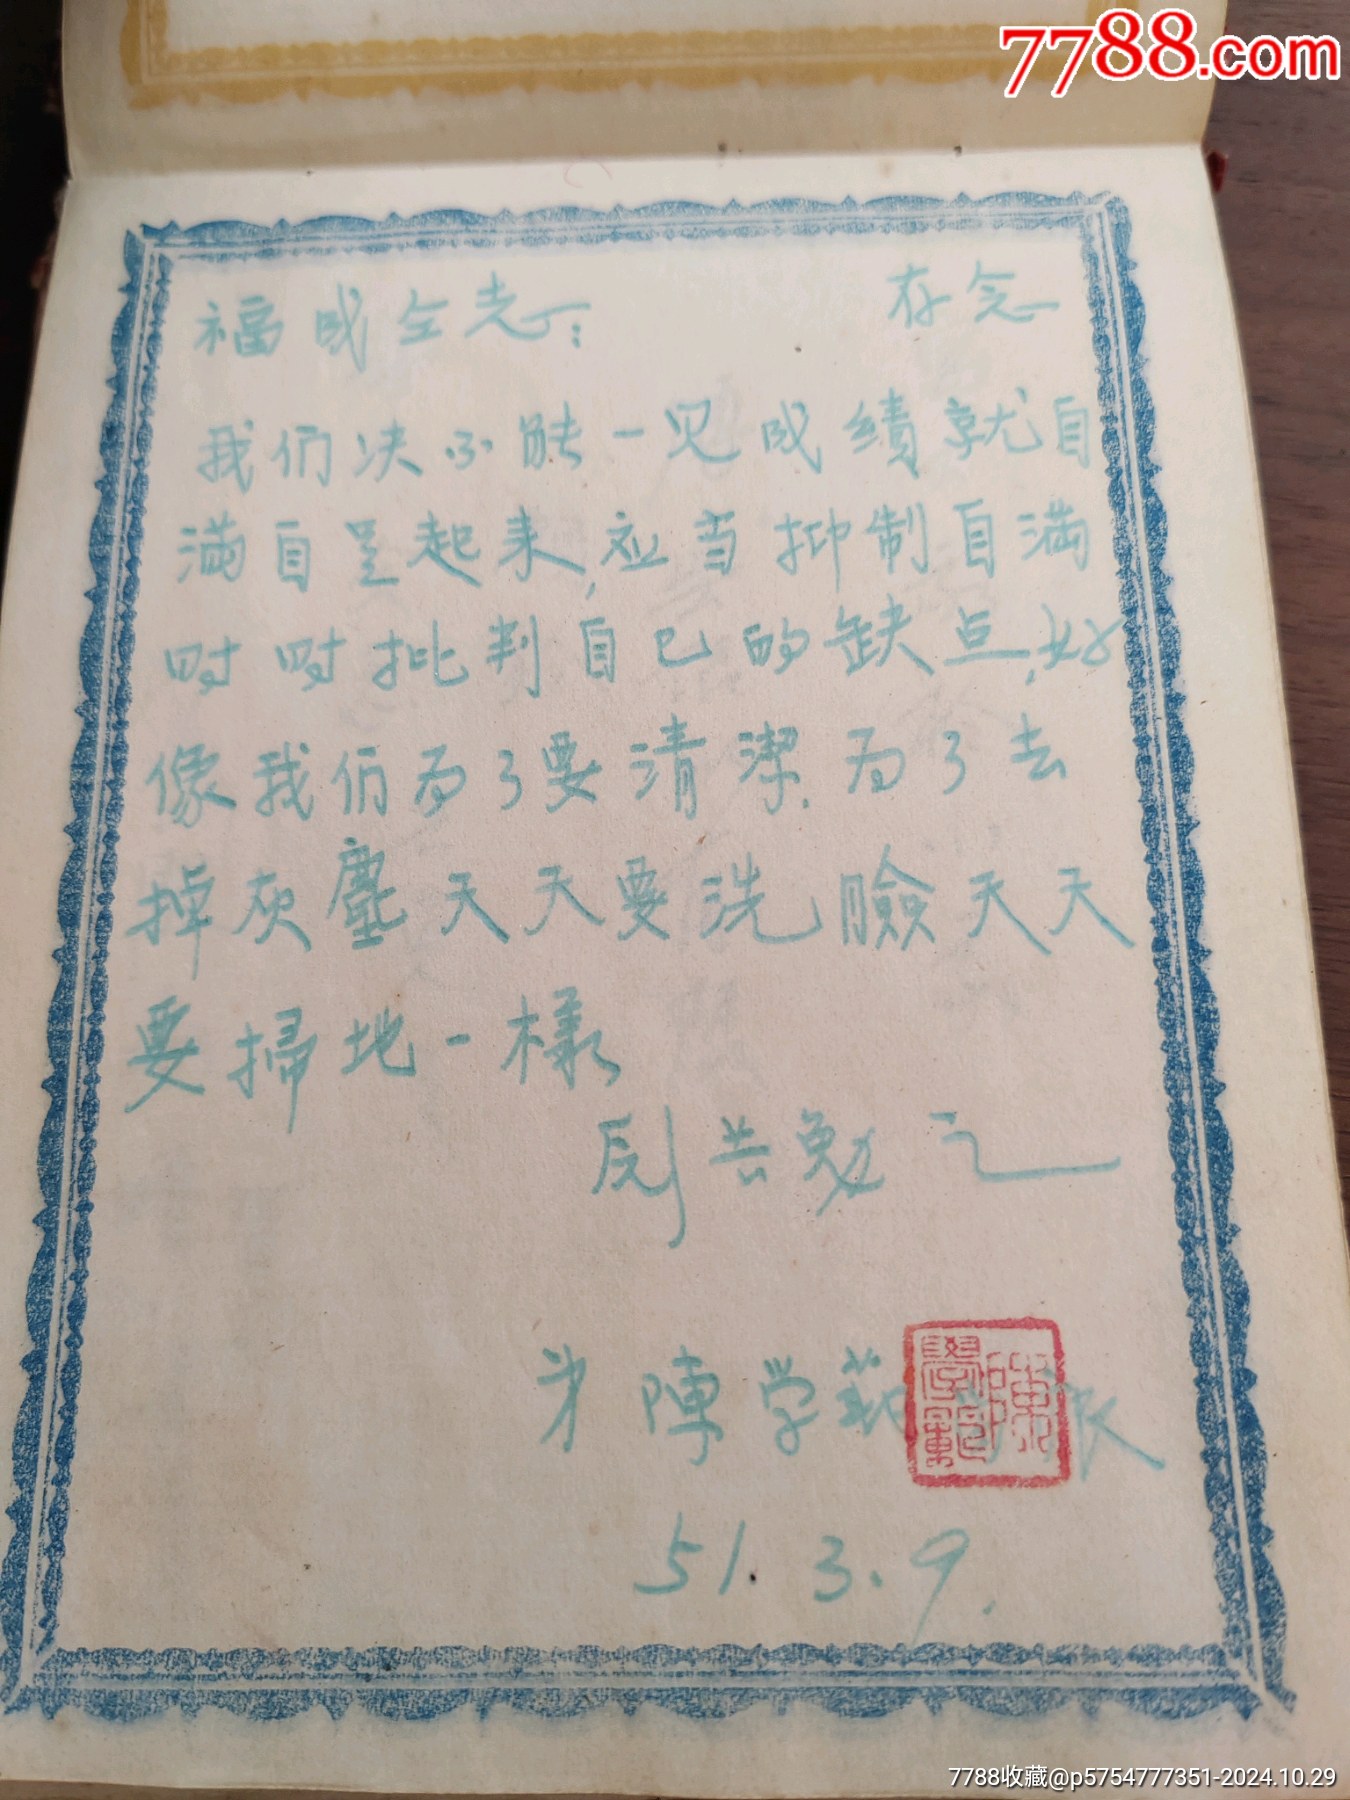 7788.com
福成仝志： 存念
我们决不能一见成绩就自
满自足起来,应当抑制自满
时时批判自己的缺点,好
像我们为了要清潔.为了去
掉灰塵天天要洗臉天天
要掃地一樣
共勉之
弟 陳学範
陳學範
51.3.9.
7788收藏@p5754777351-2024.10.29